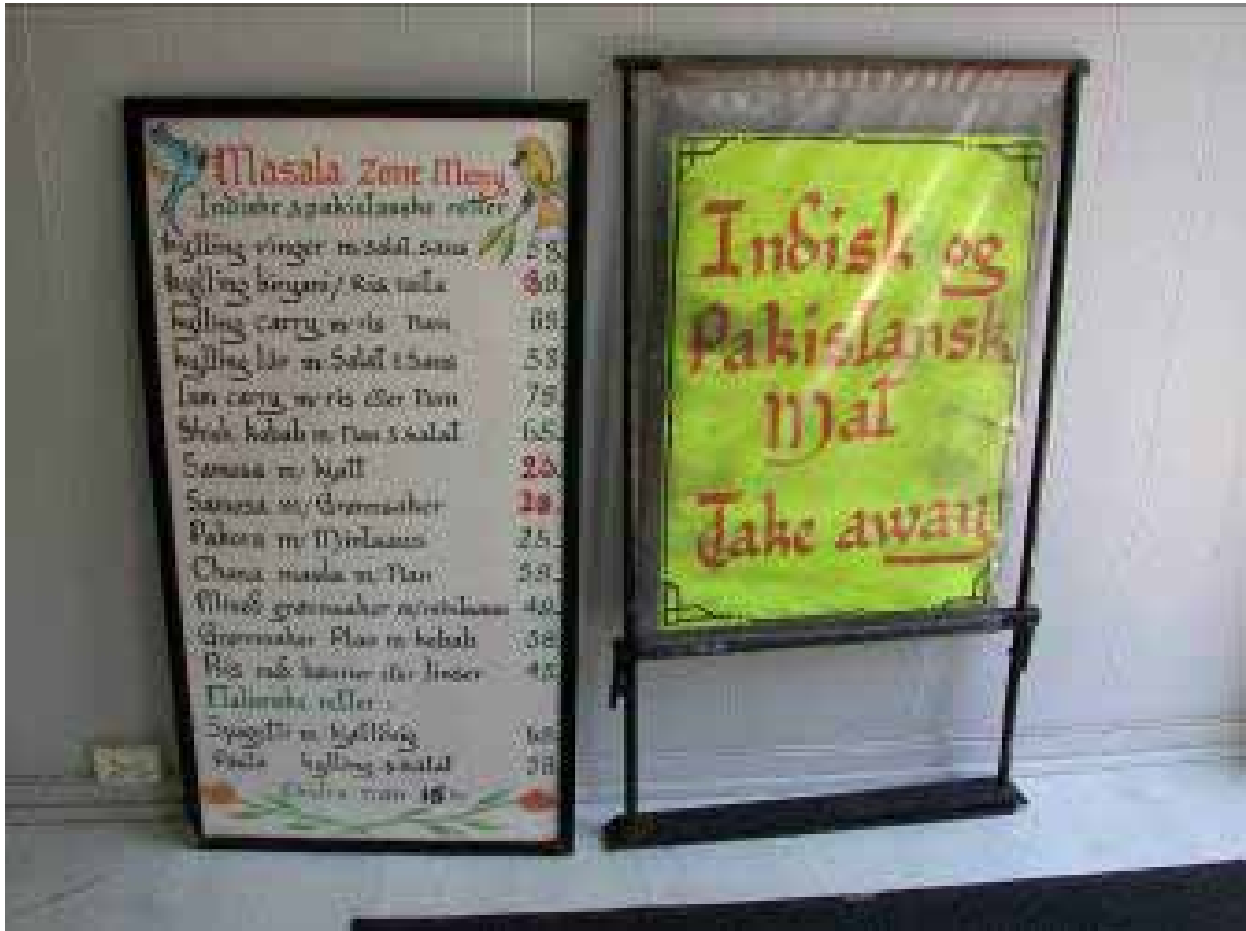 Masala Zone Meny
Indiske & pakistanske retter
kylling vinger m/salat. saus 58.
kylling biryani / Ris 89.
kylling carry m/ris Nan 69.
kylling lår m Salat & Saus 58.
carry m/ris eller Nan 79.
kebab m Nan & salat 65.
Samosa m/ kjøtt
Samosa m/Grønnsaker 20.
Pakora m/Mintsaus 25.
Chana masla m/Nan 59.
grønnsaker m/mintsaus 40.
Grønnsaker Plao m kebab 58
Ris med bønner eller linser 45
Italienske retter
Spagetti m kjøttdeig
Pasta kylling & salat 58
Ekstra nan 15
Indisk og
Pakistansk
Mat
Take away